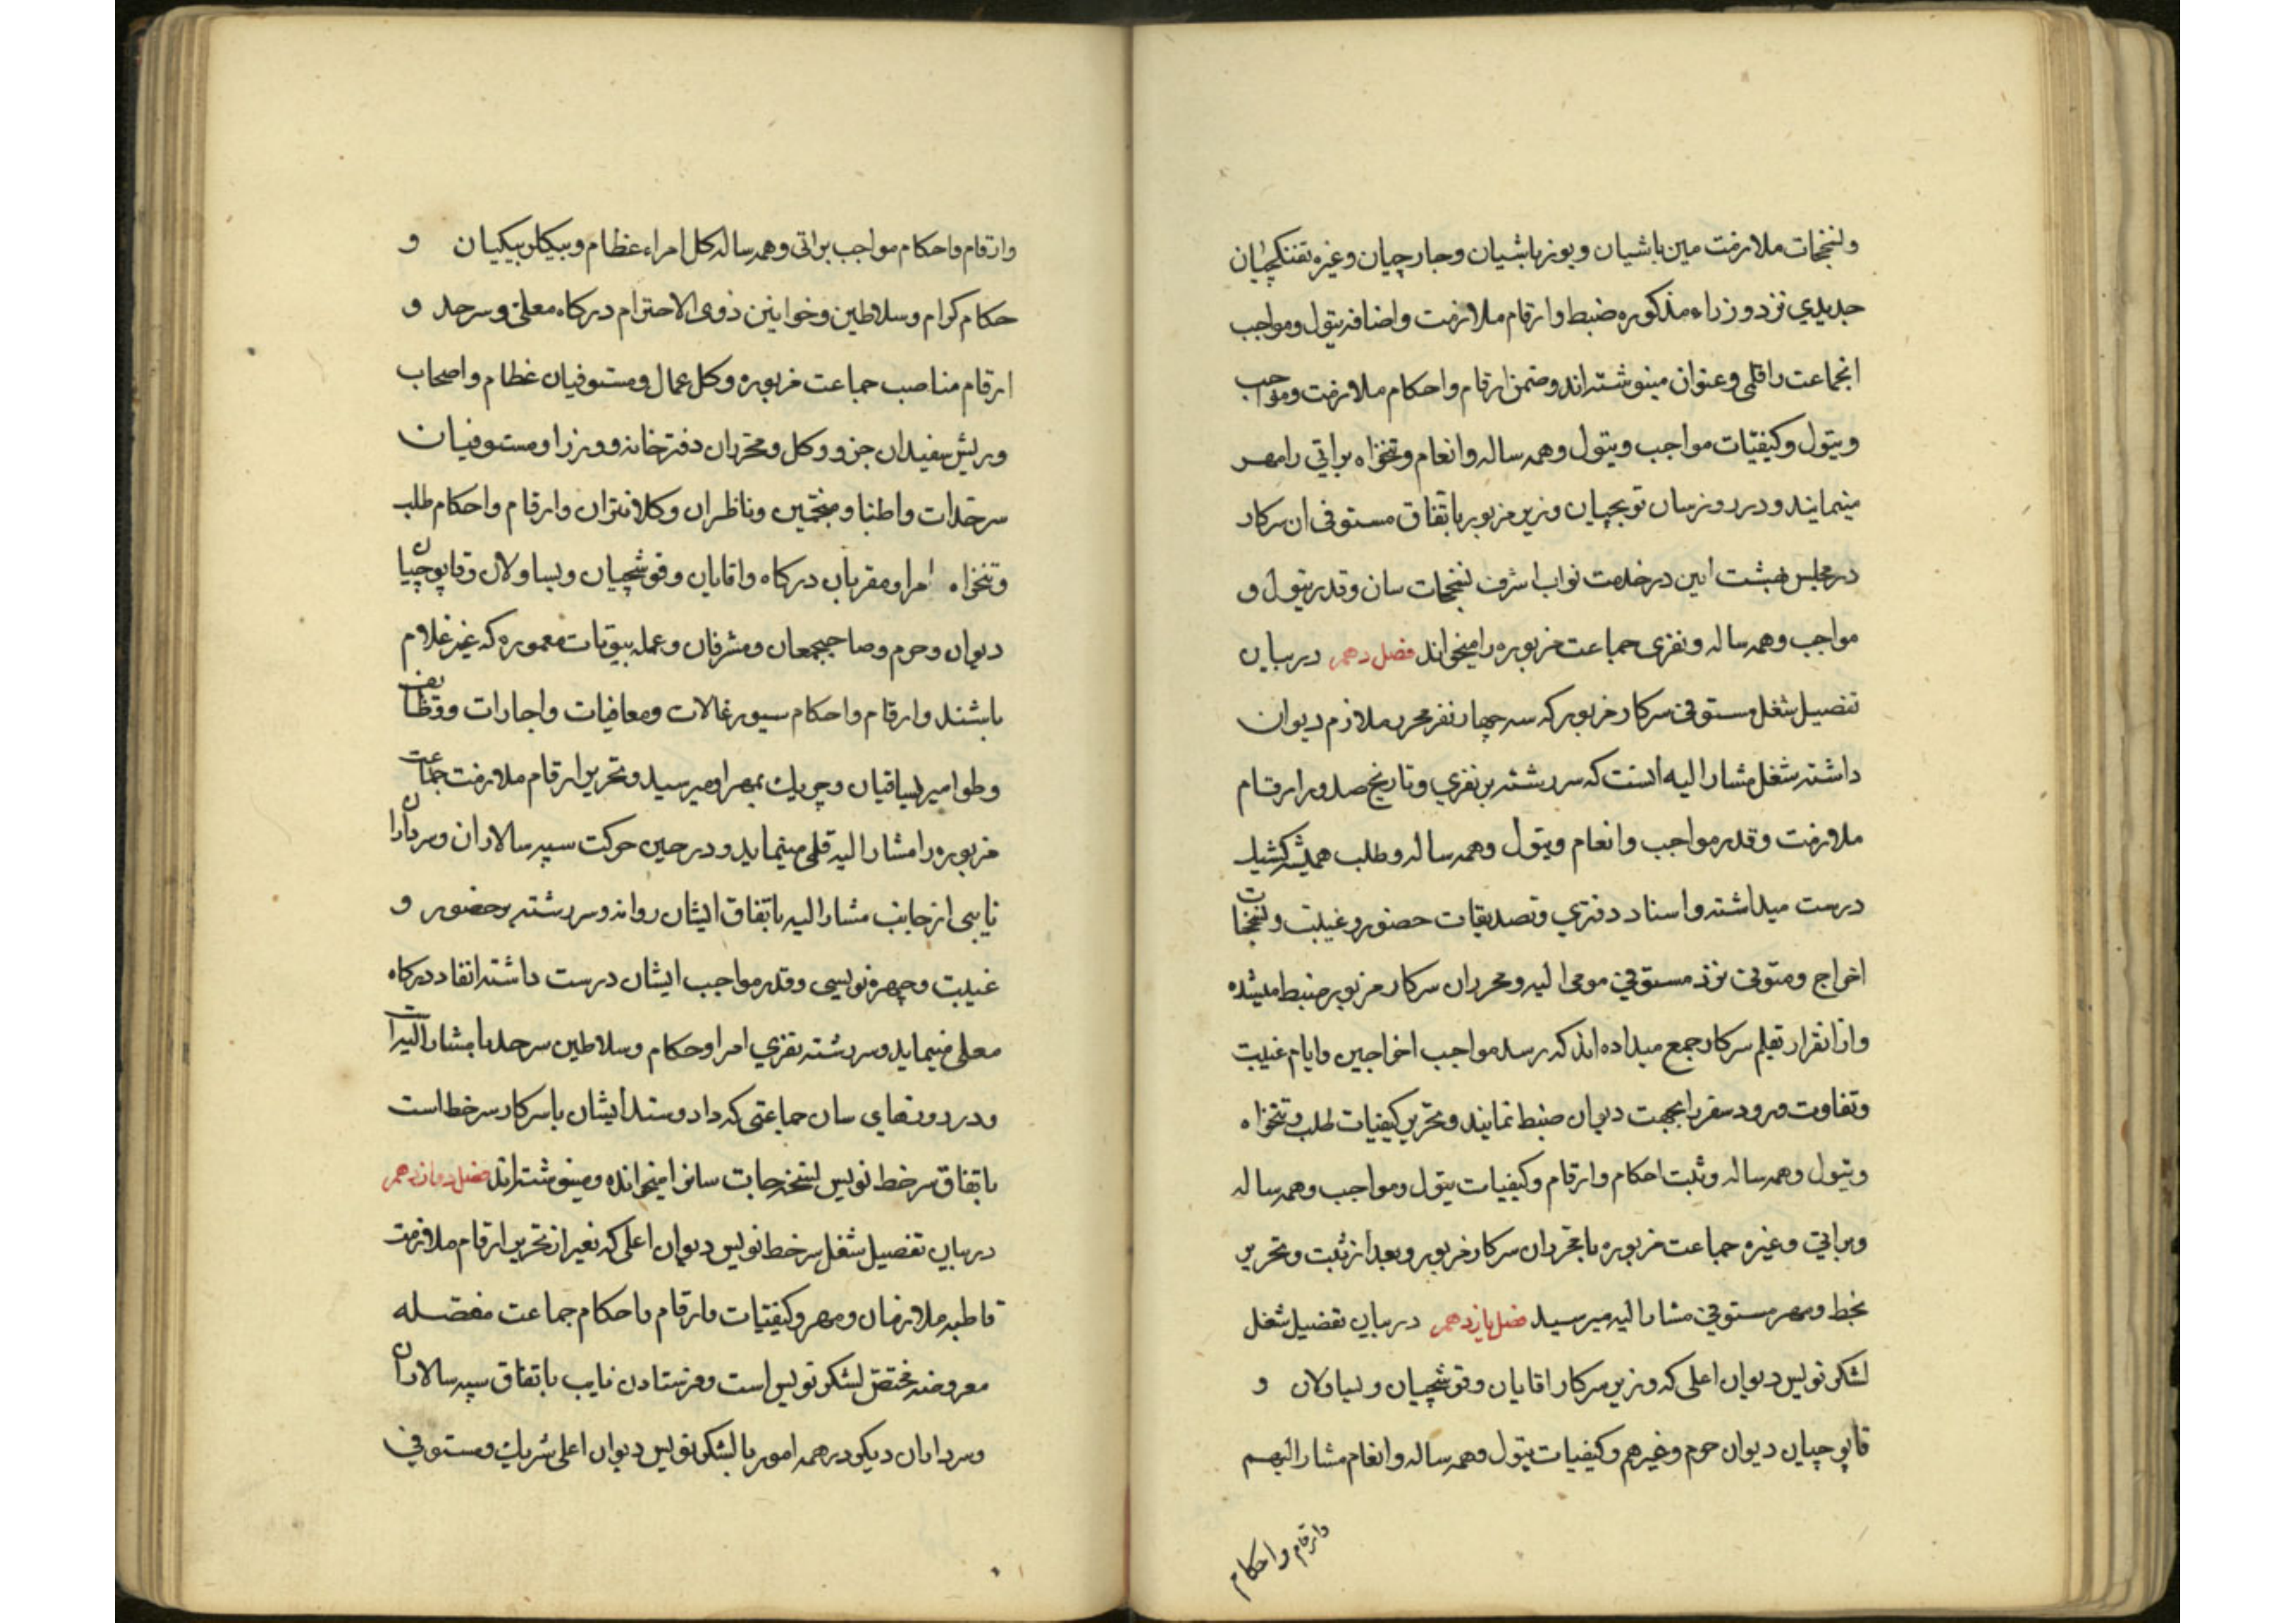 ونسخجات ملازمت مین‌باشیان و یوزباشیان و جارچیان و غیره تفنکچیان
جدیدی نزد وزراء مذکوره ضبط و ارقام ملازمت و اضافه تیول و مواجب
انجماعت را قلمی و عنوان مینوشته‌اند و ضمن ارقام و احکام ملازمت و مواجب
و تیول و کیفیّات مواجب و تیول و همه ساله و انعام و تنخواه براتی را مهر
مینمایند و در روز سان توپچیان وزیر مزبور باتفاق مستوفی ان سرکار
در مجلس بهشت ایین در خدمت نواب اشرف نسخجات سان و قدر تیول و
مواجب و همه ساله و نفری جماعت مزبوره را میخواند فصل دهم در بیان
تفصیل شغل مستوفی سرکار مزبور که سه چهار نفر محرر ملازم دیوان
داشته شغل مشار الیه انست که سررشته بر نفری و تاریخ صدور ارقام
ملازمت و قدر مواجب و انعام و تیول و همه ساله و طلب همیشه کشیک
درست میداشته و اسناد دفتری و تصدیقات حضور و غیبت و نسخجات
اخراج و متوفی نزد مستوفی مومی الیه و محرران سرکار مزبور ضبط میشده
و از انقرار تقلم سرکار جمع میداده‌اند که رسد مواجب اخراجین و ایام غیبت
و تفاوت ورود سفر را بجهت دیوان ضبط نمایند و تحریر کیفیات طلب و تنخواه
و تیول و همه ساله و ثبت احکام و ارقام و کیفیات تیول و مواجب و همه ساله
و براتی و غیره جماعت مزبوره با محرران سرکار مزبور و بعد از ثبت و تحریر
بخط و مهر مستوفی مشار الیه میرسید فصل یازدهم در بیان تفصیل شغل
لشکر نویس دیوان اعلی که وزیر سرکار اقایان و قوشچیان و یساولان و
قاپوچیان دیوان حرم و غیرهم و کیفیات تیول و همه ساله و انعام مشار الیهم
وارقام واحکام
وارقام واحکام مواجب براتی و همه ساله کل امراء عظام و بیکلربیکیان و
حکام کرام و سلاطین و خوانین ذوی الاحترام درکاه معلی و سرحد و
ارقام مناصب جماعت مزبوره و کل عمال و مستوفیان عظام و اصحاب
و ریش سفیدان جزو و کل و محرران دفترخانه و وزرا و مستوفیان
سرحدات و اطبا و منجمین و ناظران و کلانتران و ارقام و احکام طلب
و تنخواه امرا و مقربان درکاه و اقایان و قوشچیان و یساولان و قاپوچیان
دیوان و حرم و صاحبجمعان و مشرفان و عمله بیوتات معموره که غیر غلام
باشند و ارقام و احکام سیورغالات و معافیات و اجارات و وظایف
و طوامیر یساقیان و چریک بمهر او میرسید و تحریر ارقام ملازمت جماعت
مزبوره را مشار الیه قلمی مینماید و در حین حرکت سپه سالاران و سرداران
نایبی از جانب مشار الیه باتفاق ایشان روانه و سررشته بر حضور و
غیبت و چهره نویسی و قدر مواجب ایشان درست داشته انفاد درکاه
معلی مینماید و سررشته نفری امرا و حکام و سلاطین سرحد با مشار الیه است
و در روزهای سان جماعتی که داد و ستد ایشان با سرکار سرخط است
باتفاق سرخط نویس نسخه‌جات سانرا میخوانده و مینوشته‌اند فصل دوازدهم
در بیان تفصیل شغل سرخط نویس دیوان اعلی که بغیر از تحریر ارقام ملازمت
قاطبه ملازمان و مهر و کیفیّات و ارقام و احکام جماعت مفصّله
معروضه مختصّ لشکر نویس است و فرستادن نایب باتفاق سپه سالاران
و سرداران دیکر در همه امور با لشکر نویس دیوان اعلی شریک و مستوفی